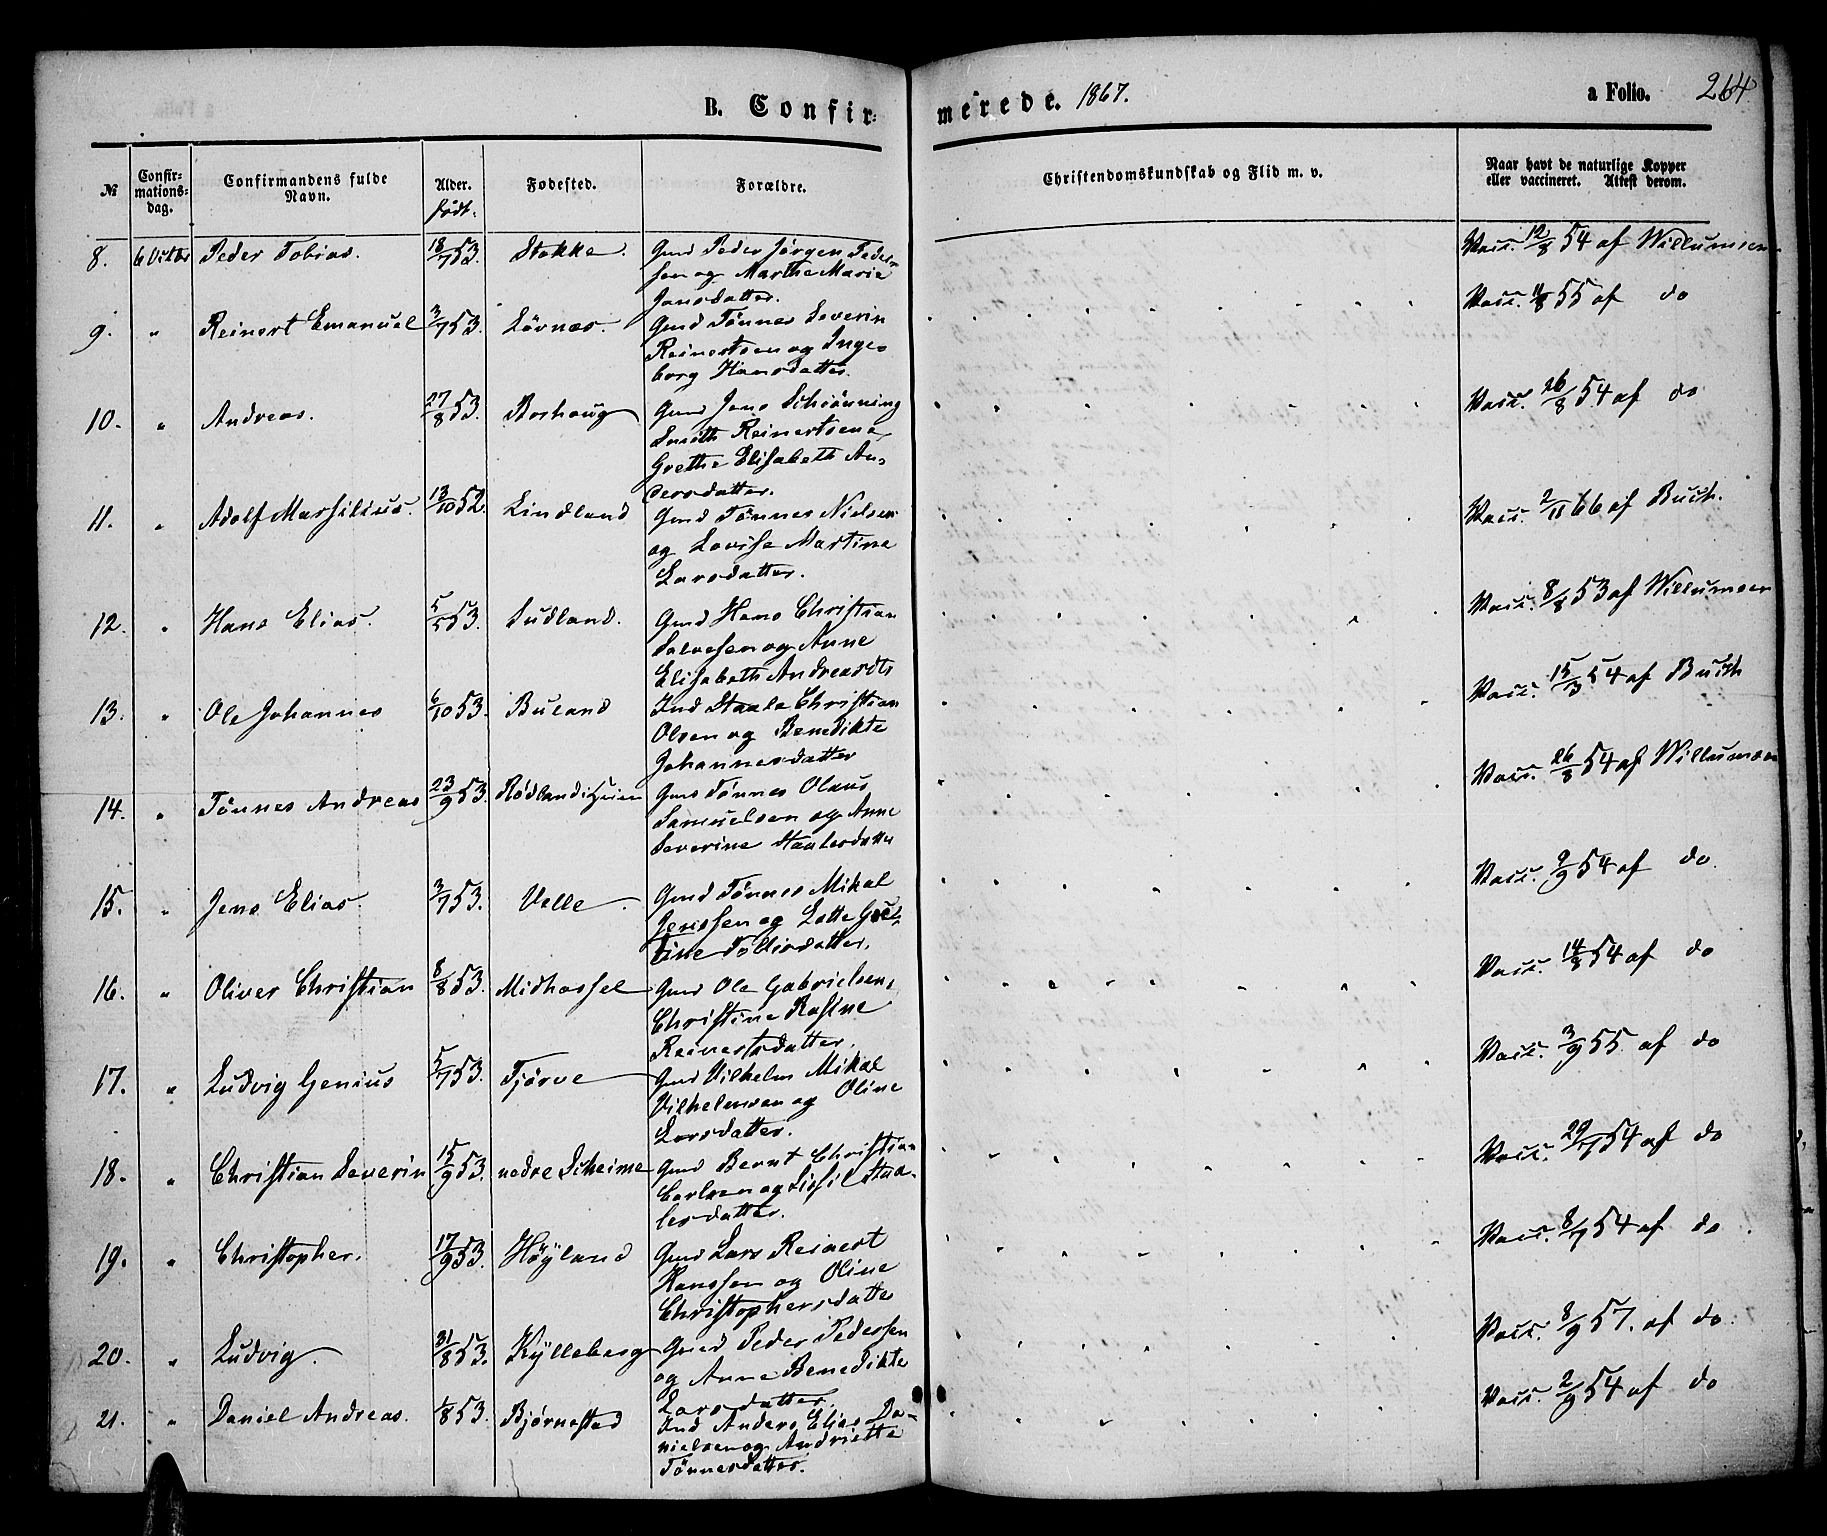 B. Confir= merede. 1867. a Folio. 264
№ Confir-mations-dag. Confirmandens fulde Navn. Alder. født. Fødested. Forældre. Christendomskundskab og Flid m. v. Naar havt de naturlige Kopper eller vaccineret. Attest derom.
8. 6 Octbr Peder Tobias. 18/7 53. Stokke. Gmd Peder Jørgen Peder- Vacc. 12/8 54 af Willumsen
sen og Marthe Marie
Jansdatter.
9. " Reinert Emanuel 3/7 53. Lövnæs. Gmd Tönnes Severin Vacc. 11/8 55 af do
Reinertsen og Inge-
borg Hansdatter.
10. " Andreas. 27/8 53. Borhaug Gmd Jens Schiönning Vacc. 26/8 54 af do
Smith Reinertsen
Grethe Elisabeth An-
dersdatter.
11. " Adolf Marsilius. 13/10 52. Lindland Gmd Tönnes Nielsen Vacc. 2/11 66 af Buch.
og Lovise Martine
Larsdatter.
12. " Hans Elias. 5/5 53. Sudland. Gmd Hans Christian Vacc. 8/8 53 af Willumsen
Salvesen og Anne
Elisabeth Andreasdtr
13. " Ole Johannes 6/10 53. Buland Ind Staale Christian Vacc. 15/3 54 af Buch
Olsen og Benedikte
Johannesdatter
14. " Tönnes Andreas 23/9 53. Rødlandsheien Gmd Tönnes Olaus Vacc. 26/8 54 af Willumsen
Samuelsen og Anne
Severine Staalesdatter
15. " Jens Elias. 3/7 53. Velle. Gmd Tönnes Mikal Vacc. 9/9 54 af do.
Jenssen og Lotte
Tolisdatter.
16. " Oliver Christian 8/8 53. Midhassel Gmd Ole Gabrielsen, Vacc. 14/8 54 af do
Christine Rasine
Reinertsdatter.
17. " Ludvig Genius 5/7 53. Tjørve Gmd Vilhelm Mikal Vacc. 3/9 55 af do
Vilhelmsen og Oline
Larsdatter.
18. " Christian Severin 15/9 53. nedre Skeime Gmd Bernt Christian Vacc. 29/7 54 af do
Carlsen og Sissil Staa-
lesdatter.
19. " Christopher. 17/9 53. Höyland Gmd Lars Reinert Vacc. 8/7 54 af do.
Hanssen og Oline
Christophersdatter
20. " Ludvig. 31/8 53. Kylleberg Gmd Peder Pedersen Vacc. 8/9 57. af do.
og Anne Benedikte
Larsdatter.
21. " Daniel Andreas. 1/8 53. Bjørnestad Ind Anders Elias Da- Vacc. 2/9 54 af do
nielsen og Andriette
Tönnesdatter.